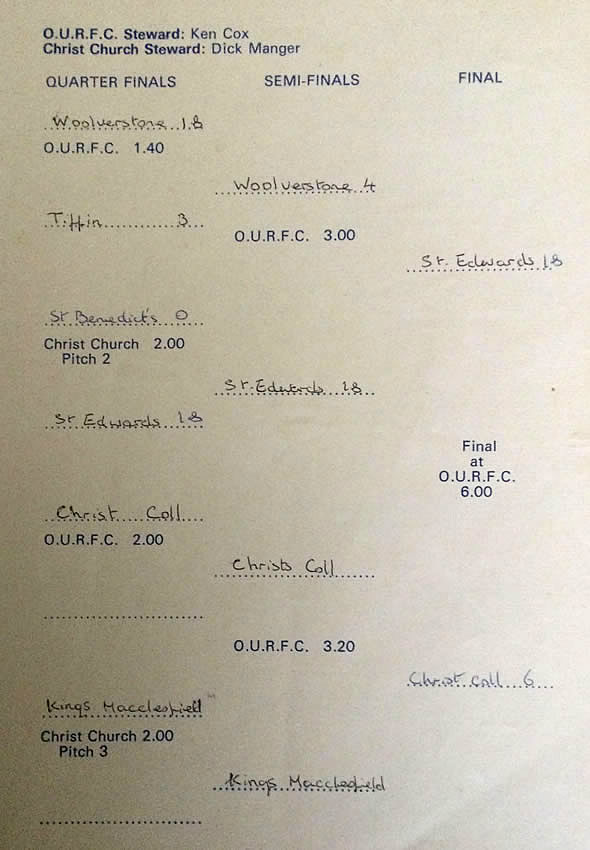 O.U.R.F.C. Steward: Ken Cox
Christ Church Steward: Dick Manger
QUARTER FINALS SEMI-FINALS FINAL
Woolverstone 18
O.U.R.F.C. 1.40
Woolverstone 4
Tiffin 3
O.U.R.F.C. 3.00
St. Edwards 18
St Benedict's 0
Christ Church 2.00
Pitch 2
St. Edwards 18
St Edwards 18
Final
at
O.U.R.F.C.
6.00
Christ Coll
O.U.R.F.C. 2.00
Christs Coll
O.U.R.F.C. 3.20
Christ Coll 6
Kings Macclesfield
Christ Church 2.00
Pitch 3
Kings Macclesfield